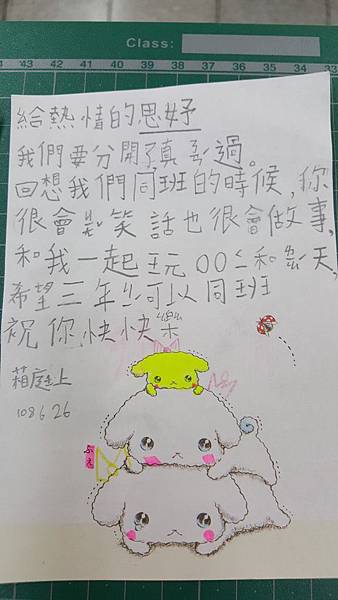 Class:
38 37 36 35 34 33
給熱情的思妤
我們要分開了真ㄋㄢˊ過。
回想我們同班的時候,你
很會ㄐㄧㄤˇ笑話也很會做事,
和我一起玩OO
和ㄌㄧㄠˊ天,
希望三年
可以同班
祝你快快樂樂
庭上
108 6 26